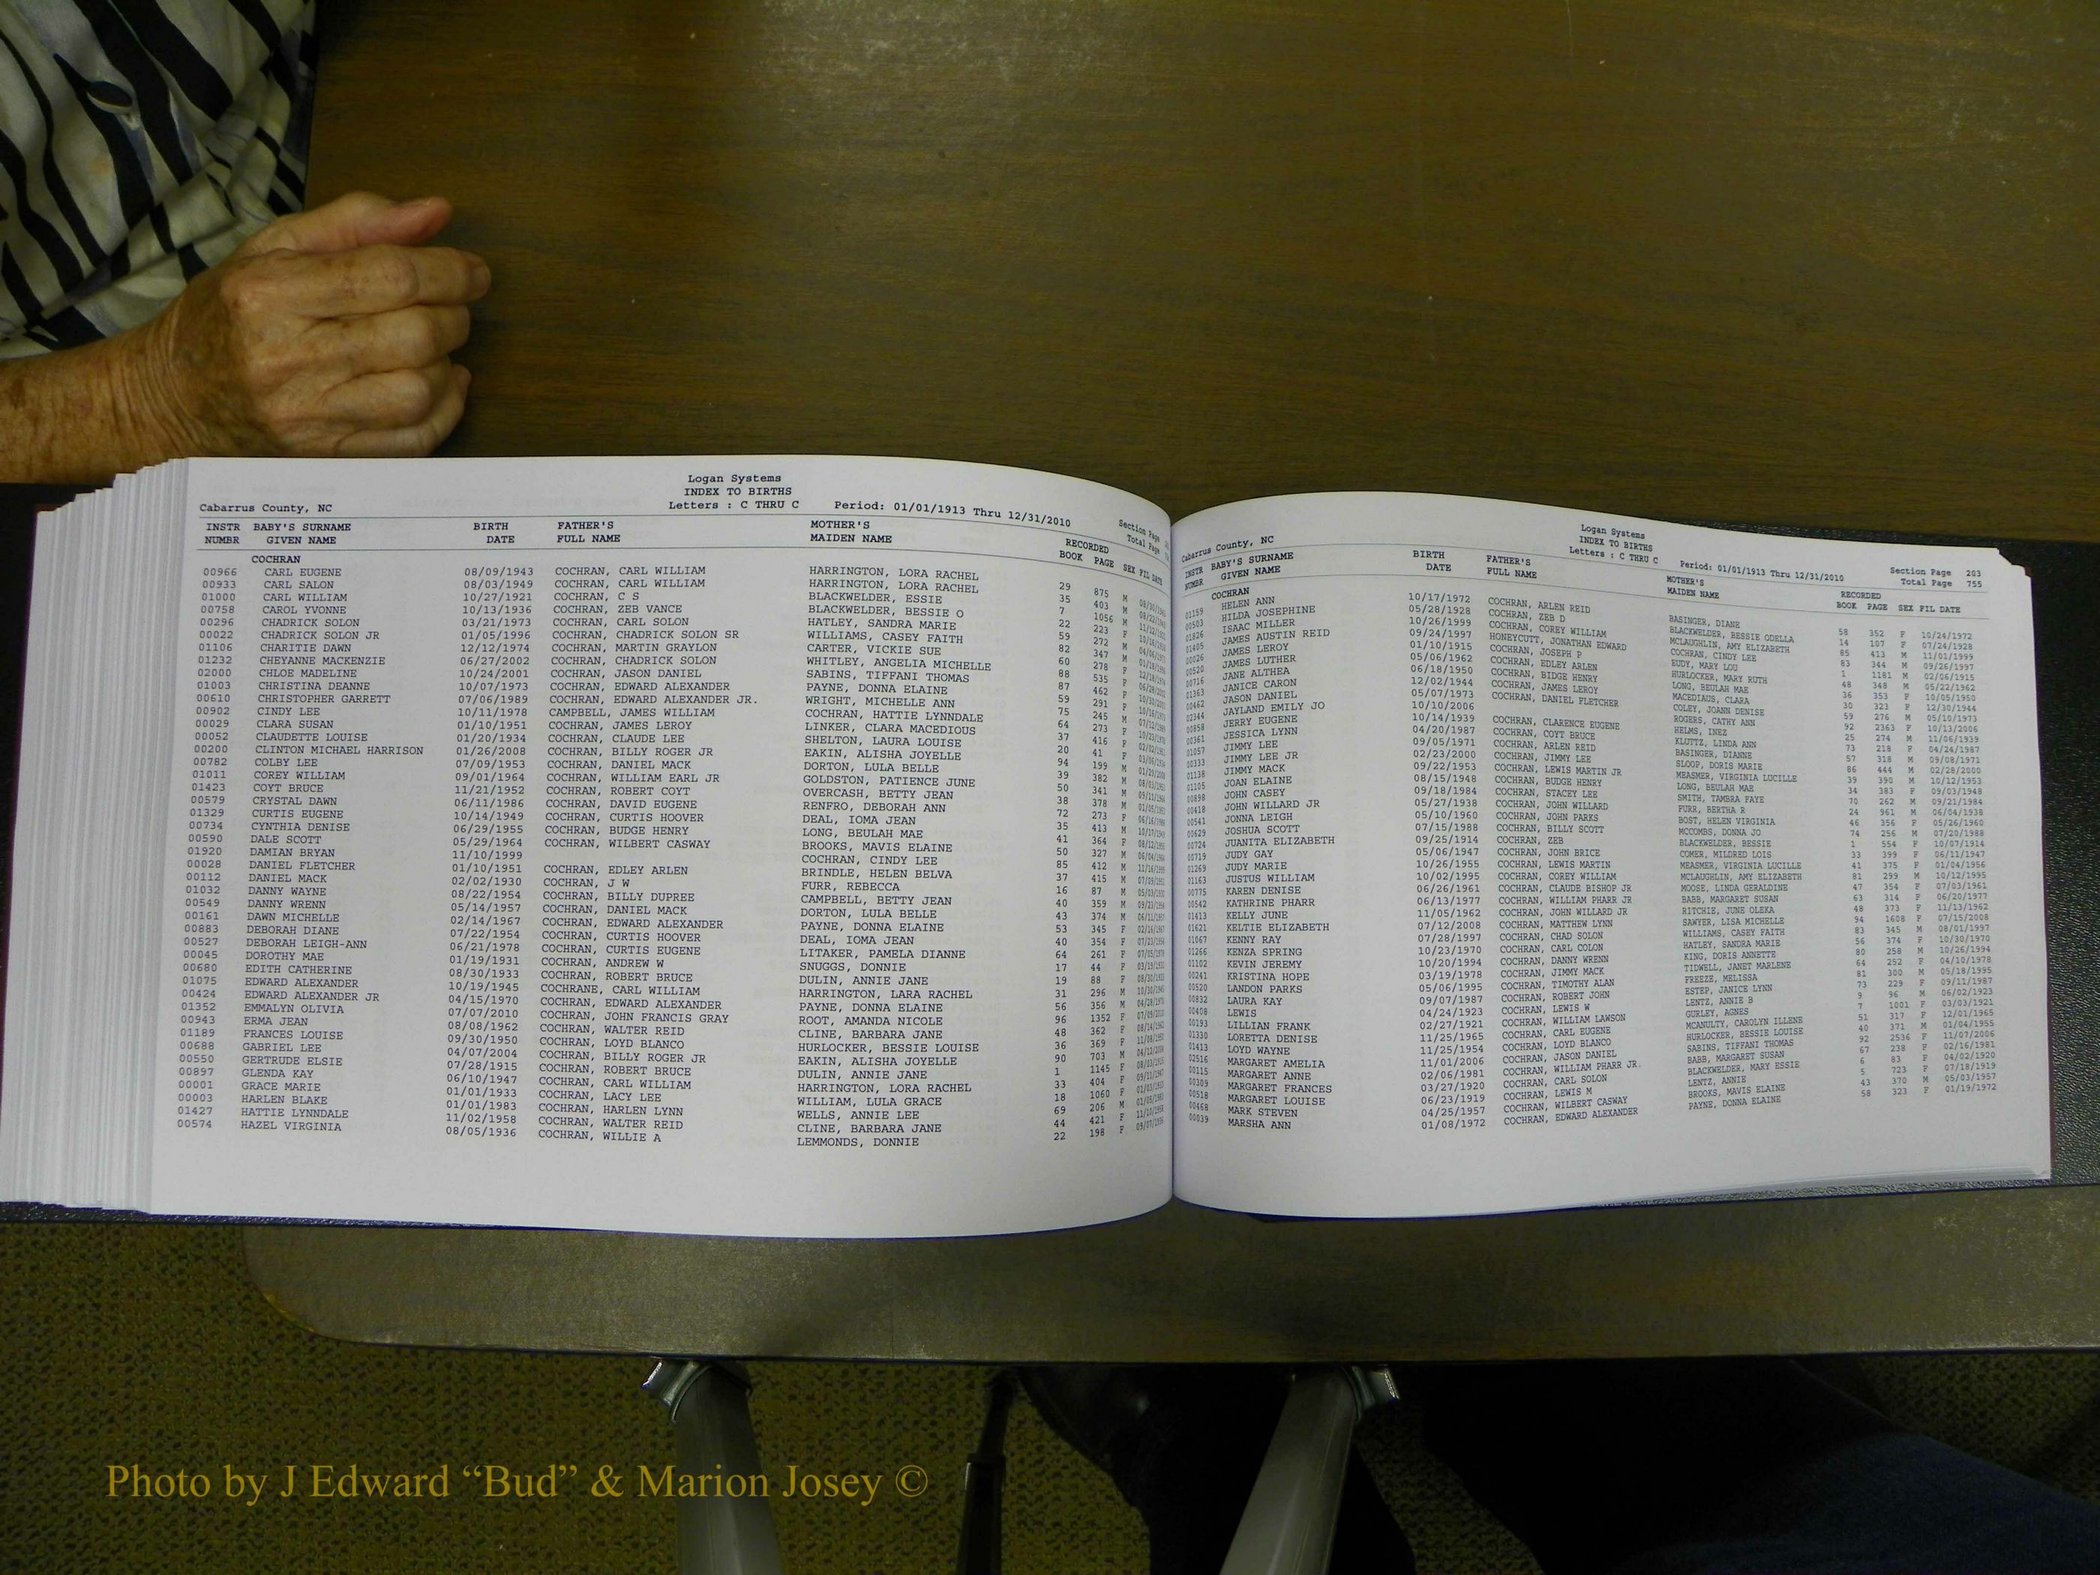 Logan Systems
INDEX TO BIRTHS
Cabarrus County, NC Letters : C THRU C Period: 01/01/1913 Thru 12/31/2010 Section Page
Total Page
INSTR BABY'S SURNAME BIRTH FATHER'S MOTHER'S RECORDED
NUMBR GIVEN NAME DATE FULL NAME MAIDEN NAME BOOK PAGE SEX FIL DATE
COCHRAN
00966 CARL EUGENE 08/09/1943 COCHRAN, CARL WILLIAM HARRINGTON, LORA RACHEL 29 875 M
00933 CARL SALON 08/03/1949 COCHRAN, CARL WILLIAM HARRINGTON, LORA RACHEL 35 403 M
01000 CARL WILLIAM 10/27/1921 COCHRAN, C S BLACKWELDER, ESSIE 7 1056 M
00758 CAROL YVONNE 10/13/1936 COCHRAN, ZEB VANCE BLACKWELDER, BESSIE O 22 223 F
00296 CHADRICK SOLON 03/21/1973 COCHRAN, CARL SOLON HATLEY, SANDRA MARIE 59 272 M
00022 CHADRICK SOLON JR 01/05/1996 COCHRAN, CHADRICK SOLON SR WILLIAMS, CASEY FAITH 82 347 M
01106 CHARITIE DAWN 12/12/1974 COCHRAN, MARTIN GRAYLON CARTER, VICKIE SUE 60 278 F
01232 CHEYANNE MACKENZIE 06/27/2002 COCHRAN, CHADRICK SOLON WHITLEY, ANGELIA MICHELLE 88 535 F
02000 CHLOE MADELINE 10/24/2001 COCHRAN, JASON DANIEL SABINS, TIFFANI THOMAS 87 462 F
01003 CHRISTINA DEANNE 10/07/1973 COCHRAN, EDWARD ALEXANDER PAYNE, DONNA ELAINE 59 291 F
00610 CHRISTOPHER GARRETT 07/06/1989 COCHRAN, EDWARD ALEXANDER JR. WRIGHT, MICHELLE ANN 75 245 M
00902 CINDY LEE 10/11/1978 CAMPBELL, JAMES WILLIAM COCHRAN, HATTIE LYNNDALE 64 273 F
00029 CLARA SUSAN 01/10/1951 COCHRAN, JAMES LEROY LINKER, CLARA MACEDIOUS 37 416 F
00052 CLAUDETTE LOUISE 01/20/1934 COCHRAN, CLAUDE LEE SHELTON, LAURA LOUISE 20 41 F
00200 CLINTON MICHAEL HARRISON 01/26/2008 COCHRAN, BILLY ROGER JR EAKIN, ALISHA JOYELLE 94 199 M
00782 COLBY LEE 07/09/1953 COCHRAN, DANIEL MACK DORTON, LULA BELLE 39 382 M
01011 COREY WILLIAM 09/01/1964 COCHRAN, WILLIAM EARL JR GOLDSTON, PATIENCE JUNE 50 341 M
01423 COYT BRUCE 11/21/1952 COCHRAN, ROBERT COYT OVERCASH, BETTY JEAN 38 378 M
00579 CRYSTAL DAWN 06/11/1986 COCHRAN, DAVID EUGENE RENFRO, DEBORAH ANN 72 273 F
01329 CURTIS EUGENE 10/14/1949 COCHRAN, CURTIS HOOVER DEAL, IOMA JEAN 35 413 M
00734 CYNTHIA DENISE 06/29/1955 COCHRAN, BUDGE HENRY LONG, BEULAH MAE 41 364 F
00590 DALE SCOTT 05/29/1964 COCHRAN, WILBERT CASWAY BROOKS, MAVIS ELAINE 50 327 M
01920 DAMIAN BRYAN 11/10/1999 COCHRAN, CINDY LEE 85 412 M
00028 DANIEL FLETCHER 01/10/1951 COCHRAN, EDLEY ARLEN BRINDLE, HELEN BELVA 37 415 M
00112 DANIEL MACK 02/02/1930 COCHRAN, J W FURR, REBECCA 16 87 M
01032 DANNY WAYNE 08/22/1954 COCHRAN, BILLY DUPREE CAMPBELL, BETTY JEAN 40 359 M
00549 DANNY WRENN 05/14/1957 COCHRAN, DANIEL MACK DORTON, LULA BELLE 43 374 M
00161 DAWN MICHELLE 02/14/1967 COCHRAN, EDWARD ALEXANDER PAYNE, DONNA ELAINE 53 345 F
00883 DEBORAH DIANE 07/22/1954 COCHRAN, CURTIS HOOVER DEAL, IOMA JEAN 40 354 F
00527 DEBORAH LEIGH-ANN 06/21/1978 COCHRAN, CURTIS EUGENE LITAKER, PAMELA DIANNE 64 261 F
00045 DOROTHY MAE 01/19/1931 COCHRAN, ANDREW W SNUGGS, DONNIE 17 44 F
00680 EDITH CATHERINE 08/30/1933 COCHRAN, ROBERT BRUCE DULIN, ANNIE JANE 19 88 F
01075 EDWARD ALEXANDER 10/19/1945 COCHRANE, CARL WILLIAM HARRINGTON, LARA RACHEL 31 296 M
00424 EDWARD ALEXANDER JR 04/15/1970 COCHRAN, EDWARD ALEXANDER PAYNE, DONNA ELAINE 56 356 M
01352 EMMALYN OLIVIA 07/07/2010 COCHRAN, JOHN FRANCIS GRAY ROOT, AMANDA NICOLE 96 1352 F
00943 ERMA JEAN 08/08/1962 COCHRAN, WALTER REID CLINE, BARBARA JANE 48 362 F
01189 FRANCES LOUISE 09/30/1950 COCHRAN, LOYD BLANCO HURLOCKER, BESSIE LOUISE 36 369 F
00688 GABRIEL LEE 04/07/2004 COCHRAN, BILLY ROGER JR EAKIN, ALISHA JOYELLE 90 703 M
00550 GERTRUDE ELSIE 07/28/1915 COCHRAN, ROBERT BRUCE DULIN, ANNIE JANE 1 1145 F
00897 GLENDA KAY 06/10/1947 COCHRAN, CARL WILLIAM HARRINGTON, LORA RACHEL 33 404 F
00001 GRACE MARIE 01/01/1933 COCHRAN, LACY LEE WILLIAM, LULA GRACE 18 1060 F
00003 HARLEN BLAKE 01/01/1983 COCHRAN, HARLEN LYNN WELLS, ANNIE LEE 69 206 M
01427 HATTIE LYNNDALE 11/02/1958 COCHRAN, WALTER REID CLINE, BARBARA JANE 44 421 F
00574 HAZEL VIRGINIA 08/05/1936 COCHRAN, WILLIE A LEMMONDS, DONNIE 22 198 F
Logan Systems
INDEX TO BIRTHS
Cabarrus County, NC Letters : C THRU C Period: 01/01/1913 Thru 12/31/2010 Section Page 203
Total Page 755
INSTR BABY'S SURNAME BIRTH FATHER'S MOTHER'S RECORDED
NUMBR GIVEN NAME DATE FULL NAME MAIDEN NAME BOOK PAGE SEX FIL DATE
COCHRAN
01159 HELEN ANN 10/17/1972 COCHRAN, ARLEN REID BASINGER, DIANE 58 352 F 10/24/1972
00503 HILDA JOSEPHINE 05/28/1928 COCHRAN, ZEB D BLACKWELDER, BESSIE ODELLA 14 107 F 07/24/1928
01826 ISAAC MILLER 10/26/1999 COCHRAN, COREY WILLIAM MCLAUGHLIN, AMY ELIZABETH 85 413 M 11/01/1999
01405 JAMES AUSTIN REID 09/24/1997 HONEYCUTT, JONATHAN EDWARD COCHRAN, CINDY LEE 83 344 M 09/26/1997
00026 JAMES LEROY 01/10/1915 COCHRAN, JOSEPH P EUDY, MARY LOU 1 1181 M 02/06/1915
00520 JAMES LUTHER 05/06/1962 COCHRAN, EDLEY ARLEN HURLOCKER, MARY RUTH 48 348 M 05/22/1962
00716 JANE ALTHEA 06/18/1950 COCHRAN, BIDGE HENRY LONG, BEULAH MAE 36 353 F 10/05/1950
01363 JANICE CARON 12/02/1944 COCHRAN, JAMES LEROY MACEDIAUS, CLARA 30 323 F 12/30/1944
00462 JASON DANIEL 05/07/1973 COCHRAN, DANIEL FLETCHER COLEY, JOANN DENISE 59 276 M 05/10/1973
02344 JAYLAND EMILY JO 10/10/2006 ROGERS, CATHY ANN 92 2363 F 10/13/2006
00858 JERRY EUGENE 10/14/1939 COCHRAN, CLARENCE EUGENE HELMS, INEZ 25 274 M 11/06/1939
00361 JESSICA LYNN 04/20/1987 COCHRAN, COYT BRUCE KLUTTZ, LINDA ANN 73 218 F 04/24/1987
01057 JIMMY LEE 09/05/1971 COCHRAN, ARLEN REID BASINGER, DIANNE 57 318 M 09/08/1971
00333 JIMMY LEE JR 02/23/2000 COCHRAN, JIMMY LEE SLOOP, DORIS MARIE 86 444 M 02/28/2000
01138 JIMMY MACK 09/22/1953 COCHRAN, LEWIS MARTIN JR MEASMER, VIRGINIA LUCILLE 39 390 M 10/12/1953
01105 JOAN ELAINE 08/15/1948 COCHRAN, BUDGE HENRY LONG, BEULAH MAE 34 383 F 09/03/1948
00898 JOHN CASEY 09/18/1984 COCHRAN, STACEY LEE SMITH, TAMBRA FAYE 70 262 M 09/21/1984
00418 JOHN WILLARD JR 05/27/1938 COCHRAN, JOHN WILLARD FURR, BERTHA R 24 961 M 06/04/1938
00541 JONNA LEIGH 05/10/1960 COCHRAN, JOHN PARKS BOST, HELEN VIRGINIA 46 356 F 05/26/1960
00629 JOSHUA SCOTT 07/15/1988 COCHRAN, BILLY SCOTT MCCOMBS, DONNA JO 74 256 M 07/20/1988
00724 JUANITA ELIZABETH 09/25/1914 COCHRAN, ZEB BLACKWELDER, BESSIE 1 554 F 10/07/1914
00719 JUDY GAY 05/06/1947 COCHRAN, JOHN BRICE COMER, MILDRED LOIS 33 399 F 06/11/1947
01269 JUDY MARIE 10/26/1955 COCHRAN, LEWIS MARTIN MEASMER, VIRGINIA LUCILLE 41 375 F 01/04/1956
01163 JUSTUS WILLIAM 10/02/1995 COCHRAN, COREY WILLIAM MCLAUGHLIN, AMY ELIZABETH 81 299 M 10/12/1995
00775 KAREN DENISE 06/26/1961 COCHRAN, CLAUDE BISHOP JR MOOSE, LINDA GERALDINE 47 354 F 07/03/1961
00542 KATHRINE PHARR 06/13/1977 COCHRAN, WILLIAM PHARR JR BABB, MARGARET SUSAN 63 314 F 06/20/1977
01413 KELLY JUNE 11/05/1962 COCHRAN, JOHN WILLARD JR RITCHIE, JUNE OLEKA 48 373 F 11/13/1962
01621 KELTIE ELIZABETH 07/12/2008 COCHRAN, MATTHEW LYNN SAWYER, LISA MICHELLE 94 1608 F 07/15/2008
01067 KENNY RAY 07/28/1997 COCHRAN, CHAD SOLON WILLIAMS, CASEY FAITH 83 345 M 08/01/1997
01266 KENZA SPRING 10/23/1970 COCHRAN, CARL COLON HATLEY, SANDRA MARIE 56 374 F 10/30/1970
01102 KEVIN JEREMY 10/20/1994 COCHRAN, DANNY WRENN KING, DORIS ANNETTE 80 258 M 10/26/1994
00241 KRISTINA HOPE 03/19/1978 COCHRAN, JIMMY MACK TIDWELL, JANET MARLENE 64 252 F 04/10/1978
00520 LANDON PARKS 05/06/1995 COCHRAN, TIMOTHY ALAN FREEZE, MELISSA 81 300 M 05/18/1995
00832 LAURA KAY 09/07/1987 COCHRAN, ROBERT JOHN ESTEP, JANICE LYNN 73 229 F 09/11/1987
00408 LEWIS 04/24/1923 COCHRAN, LEWIS W LENTZ, ANNIE B 9 96 M 06/02/1923
00193 LILLIAN FRANK 02/27/1921 COCHRAN, WILLIAM LAWSON GURLEY, AGNES 7 1001 F 03/03/1921
01330 LORETTA DENISE 11/25/1965 COCHRAN, CARL EUGENE MCANULTY, CAROLYN ILLENE 51 317 F 12/01/1965
01413 LOYD WAYNE 11/25/1954 COCHRAN, LOYD BLANCO HURLOCKER, BESSIE LOUISE 40 371 M 01/04/1955
02516 MARGARET AMELIA 11/01/2006 COCHRAN, JASON DANIEL SABINS, TIFFANI THOMAS 92 2536 F 11/07/2006
00115 MARGARET ANNE 02/06/1981 COCHRAN, WILLIAM PHARR JR. BABB, MARGARET SUSAN 67 238 F 02/16/1981
00309 MARGARET FRANCES 03/27/1920 COCHRAN, CARL SOLON BLACKWELDER, MARY ESSIE 6 83 F 04/02/1920
00518 MARGARET LOUISE 06/23/1919 COCHRAN, LEWIS M LENTZ, ANNIE 5 723 F 07/18/1919
00468 MARK STEVEN 04/25/1957 COCHRAN, WILBERT CASWAY BROOKS, MAVIS ELAINE 43 370 M 05/03/1957
00039 MARSHA ANN 01/08/1972 COCHRAN, EDWARD ALEXANDER PAYNE, DONNA ELAINE 58 323 F 01/19/1972
Photo by J Edward “Bud” & Marion Josey ©